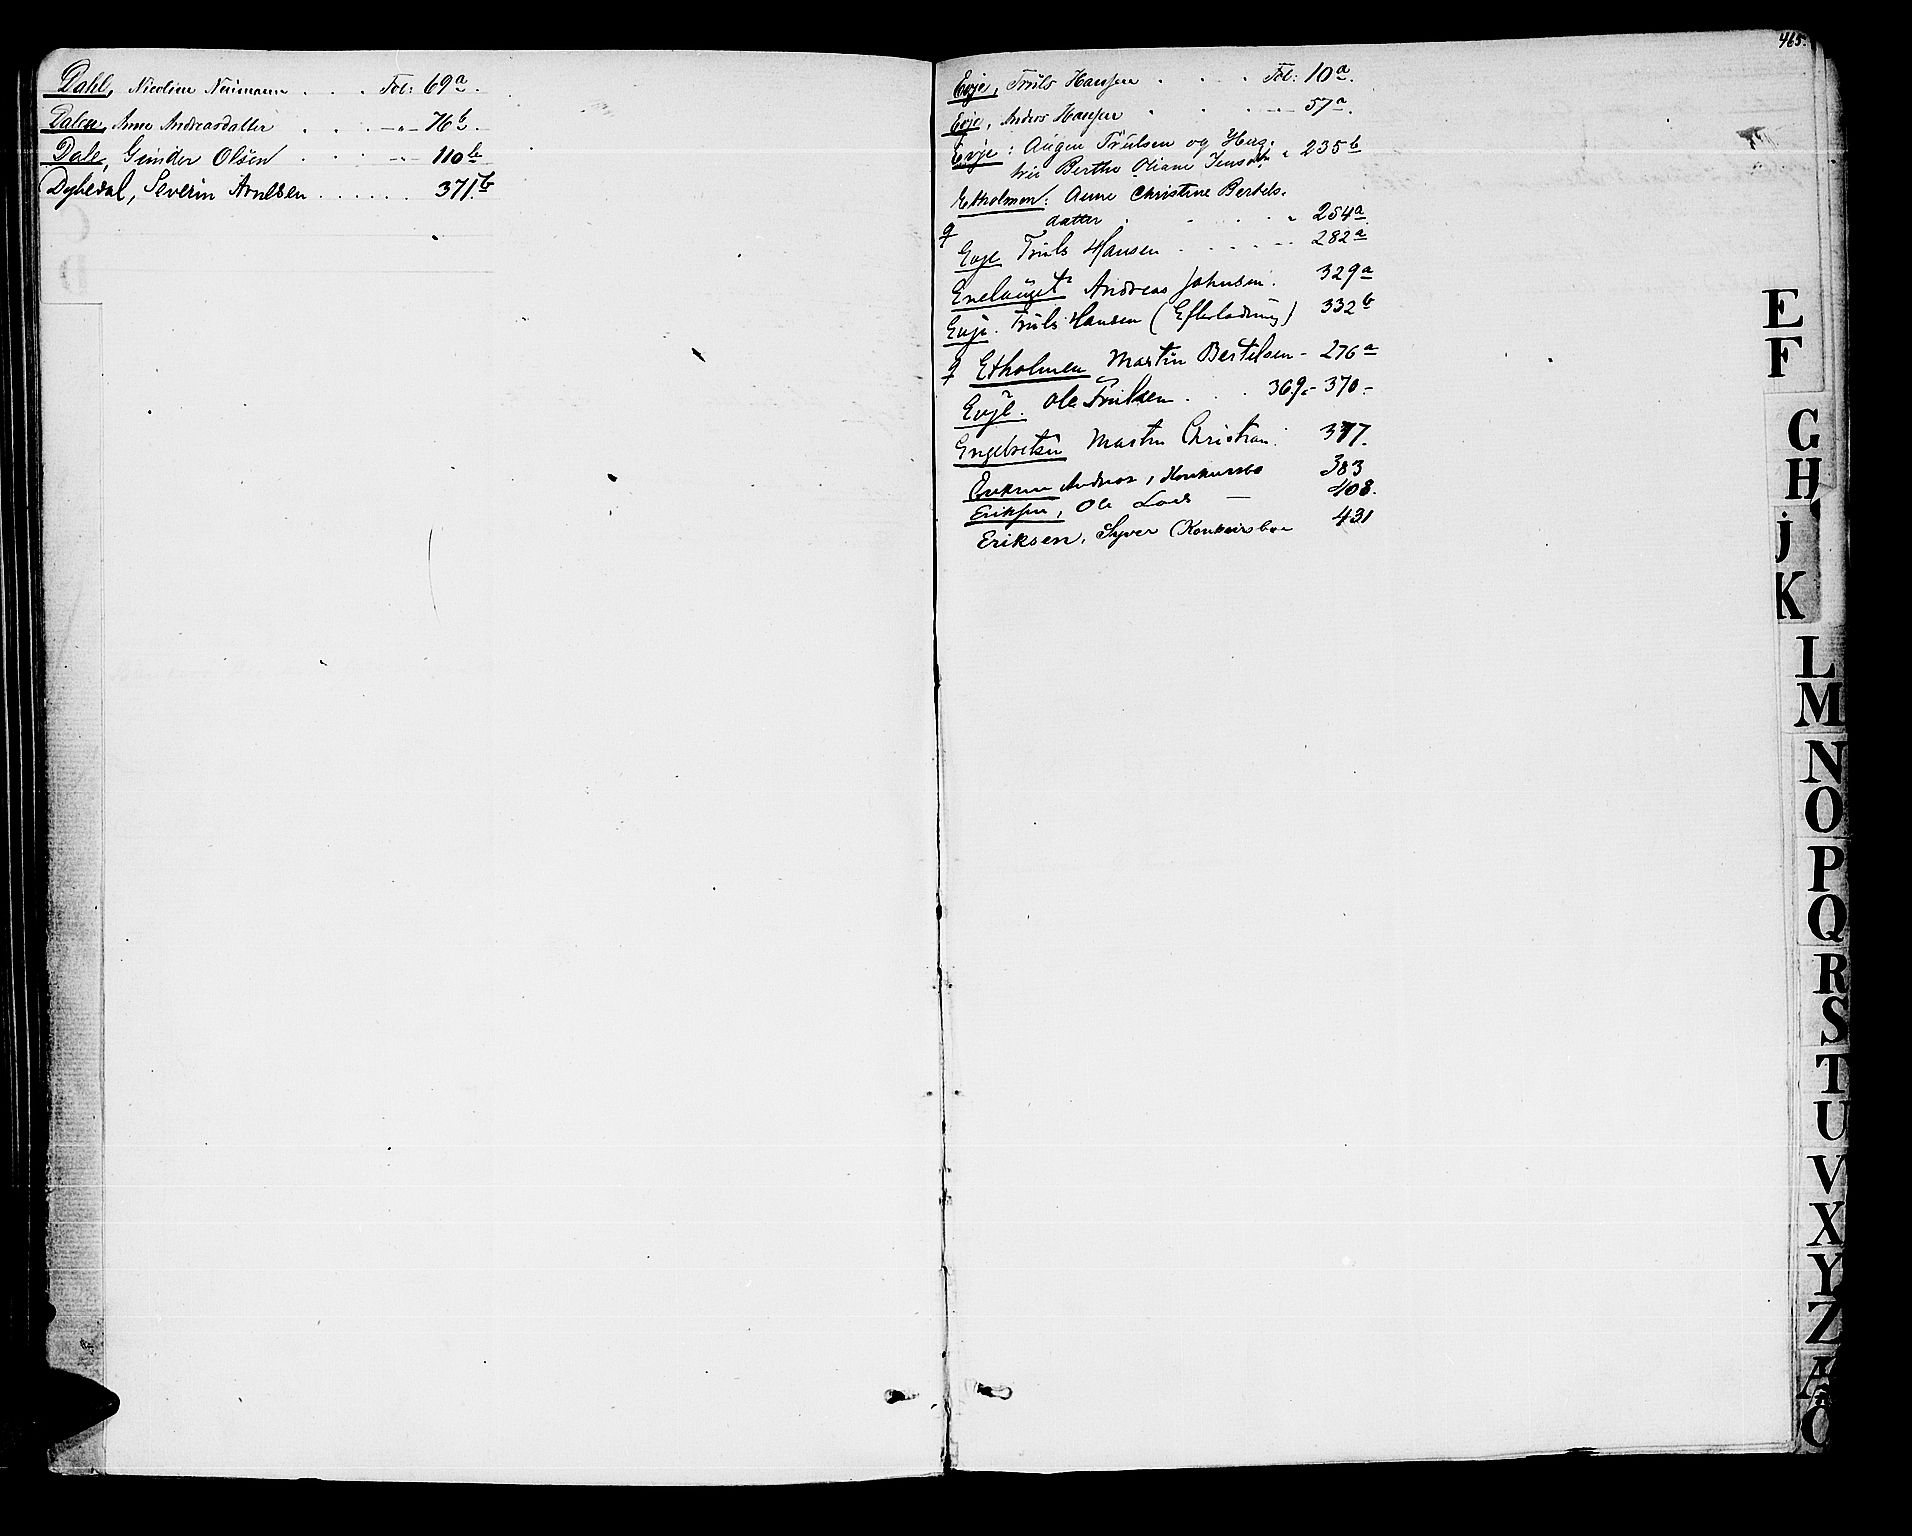 Dahl, Nicoline Neumann . . . . Fol: 69a.
Dalen, Anne Andreasdatter . . . . —"— 76b.
Dale, Gunder Olsen . . . . —"— 110b
Dyhedal, Severin Arnelsen . . . . . . 371.b
465.
Evje, Truls Hansen . . . . Fol: 10a.
Evje, Andreas Hansen . . . —"— 57a.
Evje: Augen Trulsen og Hus-
tru Berthe Oliane Jensdtr " 235b
Etholmen: Anne Christine Bertels-
datter . . . . " 254a.
Evje Truls Hansen . . . . . . 282a
Enelauget Andreas Johnsen. 329a
Evje. Truls Hansen (Efterladning) 332b
Etholmen Martin Bertelsen - 276a
Evje. Ole Trulsen . . . 369.- 370-
Engebretsen Martin Christian. 377.
Eriksen Andreas, Konkursbo 383
Eriksen, Ole Lars — 408.
Eriksen, Syver (Konkursboe 431
E
F
G
H
j
K
L
M
N
O
P
Q
R
S
T
U
V
X
Y
Z